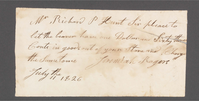 Mr Richard P Hunt Sir please to
let the bearer have one Dollar and Sixty three
Cents in goods out of your Store and charge
the same to me
July 11th 1826